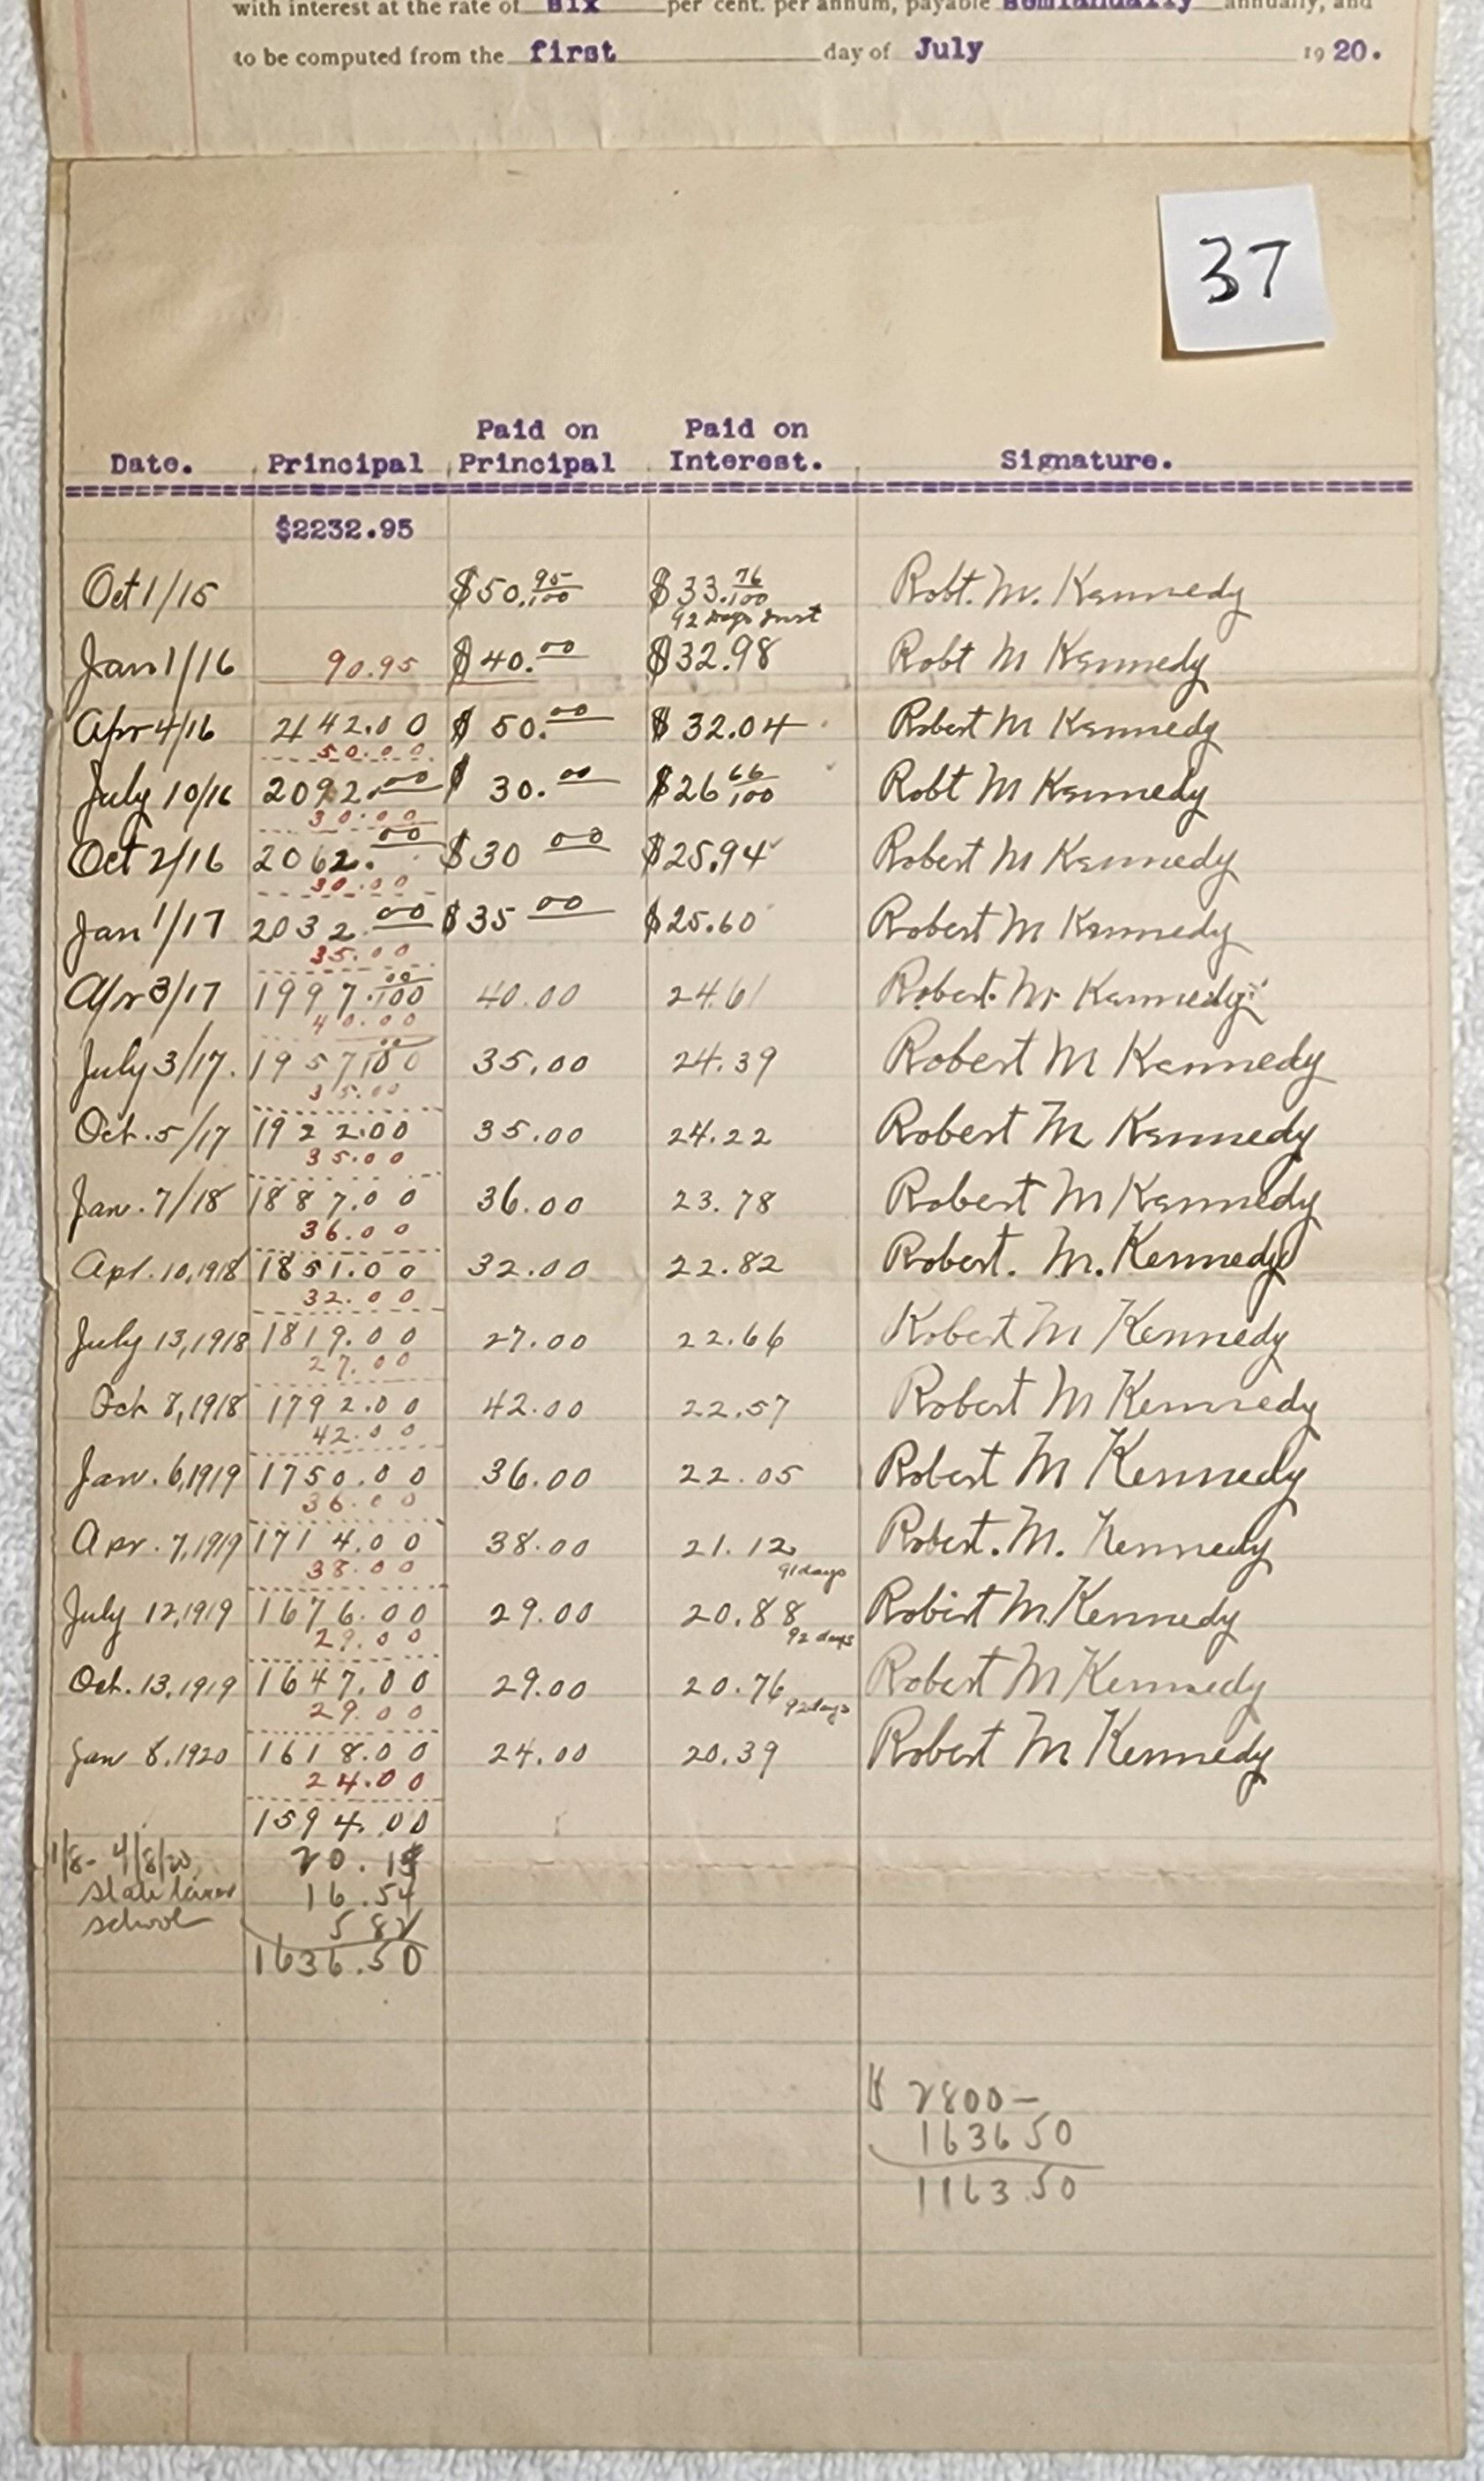 with interest at the rate of six per cent. per annum, payable semiannually annually, and
to be computed from the first day of July 1920.
37
Date. Principal Paid on Principal Paid on Interest. Signature.
$2232.95
Oct 1/15 $50.95/100 $33.76/100 Robt. M. Kennedy
92 Days Inst
Jan 1/16 90.95 $40.00 $32.98 Robt M Kennedy
Apr 4/16 2142.00 $50.00 $32.04 Robert M Kennedy
50.00
July 10/16 2092.00 $30.00 $26 66/100 Robt M Kennedy
30.00
Oct 2/16 2062.00 $30 00 $25.94 Robert M Kennedy
30.00
Jan 1/17 2032.00 $35 00 $25.60 Robert M Kennedy
35.00
Apr 3/17 1997.00/100 40.00 24.61 Robert M Kennedy
40.00
July 3/17. 1957 00/100 35.00 24.39 Robert M Kennedy
35.00
Oct. 5/17 1922.00 35.00 24.22 Robert M Kennedy
35.00
Jan. 7/18 1887.00 36.00 23.78 Robert M Kennedy
36.00
Apl. 10, 1918 1851.00 32.00 22.82 Robert. M. Kennedy
32.00
July 13, 1918 1819.00 27.00 22.66 Robert M Kennedy
27.00
Oct 8, 1918 1792.00 42.00 22.57 Robert M Kennedy
42.00
Jan. 6, 1919 1750.00 36.00 22.05 Robert M Kennedy
36.00
Apr. 7, 1919 1714.00 38.00 21.12 Robert. M. Kennedy
38.00 91 days
July 12, 1919 1676.00 29.00 20.88 Robert M. Kennedy
29.00 92 days
Oct. 13, 1919 1647.00 29.00 20.76 Robert M Kennedy
29.00 92 days
Jan 8. 1920 1618.00 24.00 20.39 Robert M Kennedy
24.00
1594.00
1/8 - 4/8/20 20.14
State taxes 16.54
school 5 82
1636.50
$ 2800 —
1636 50
1163.50